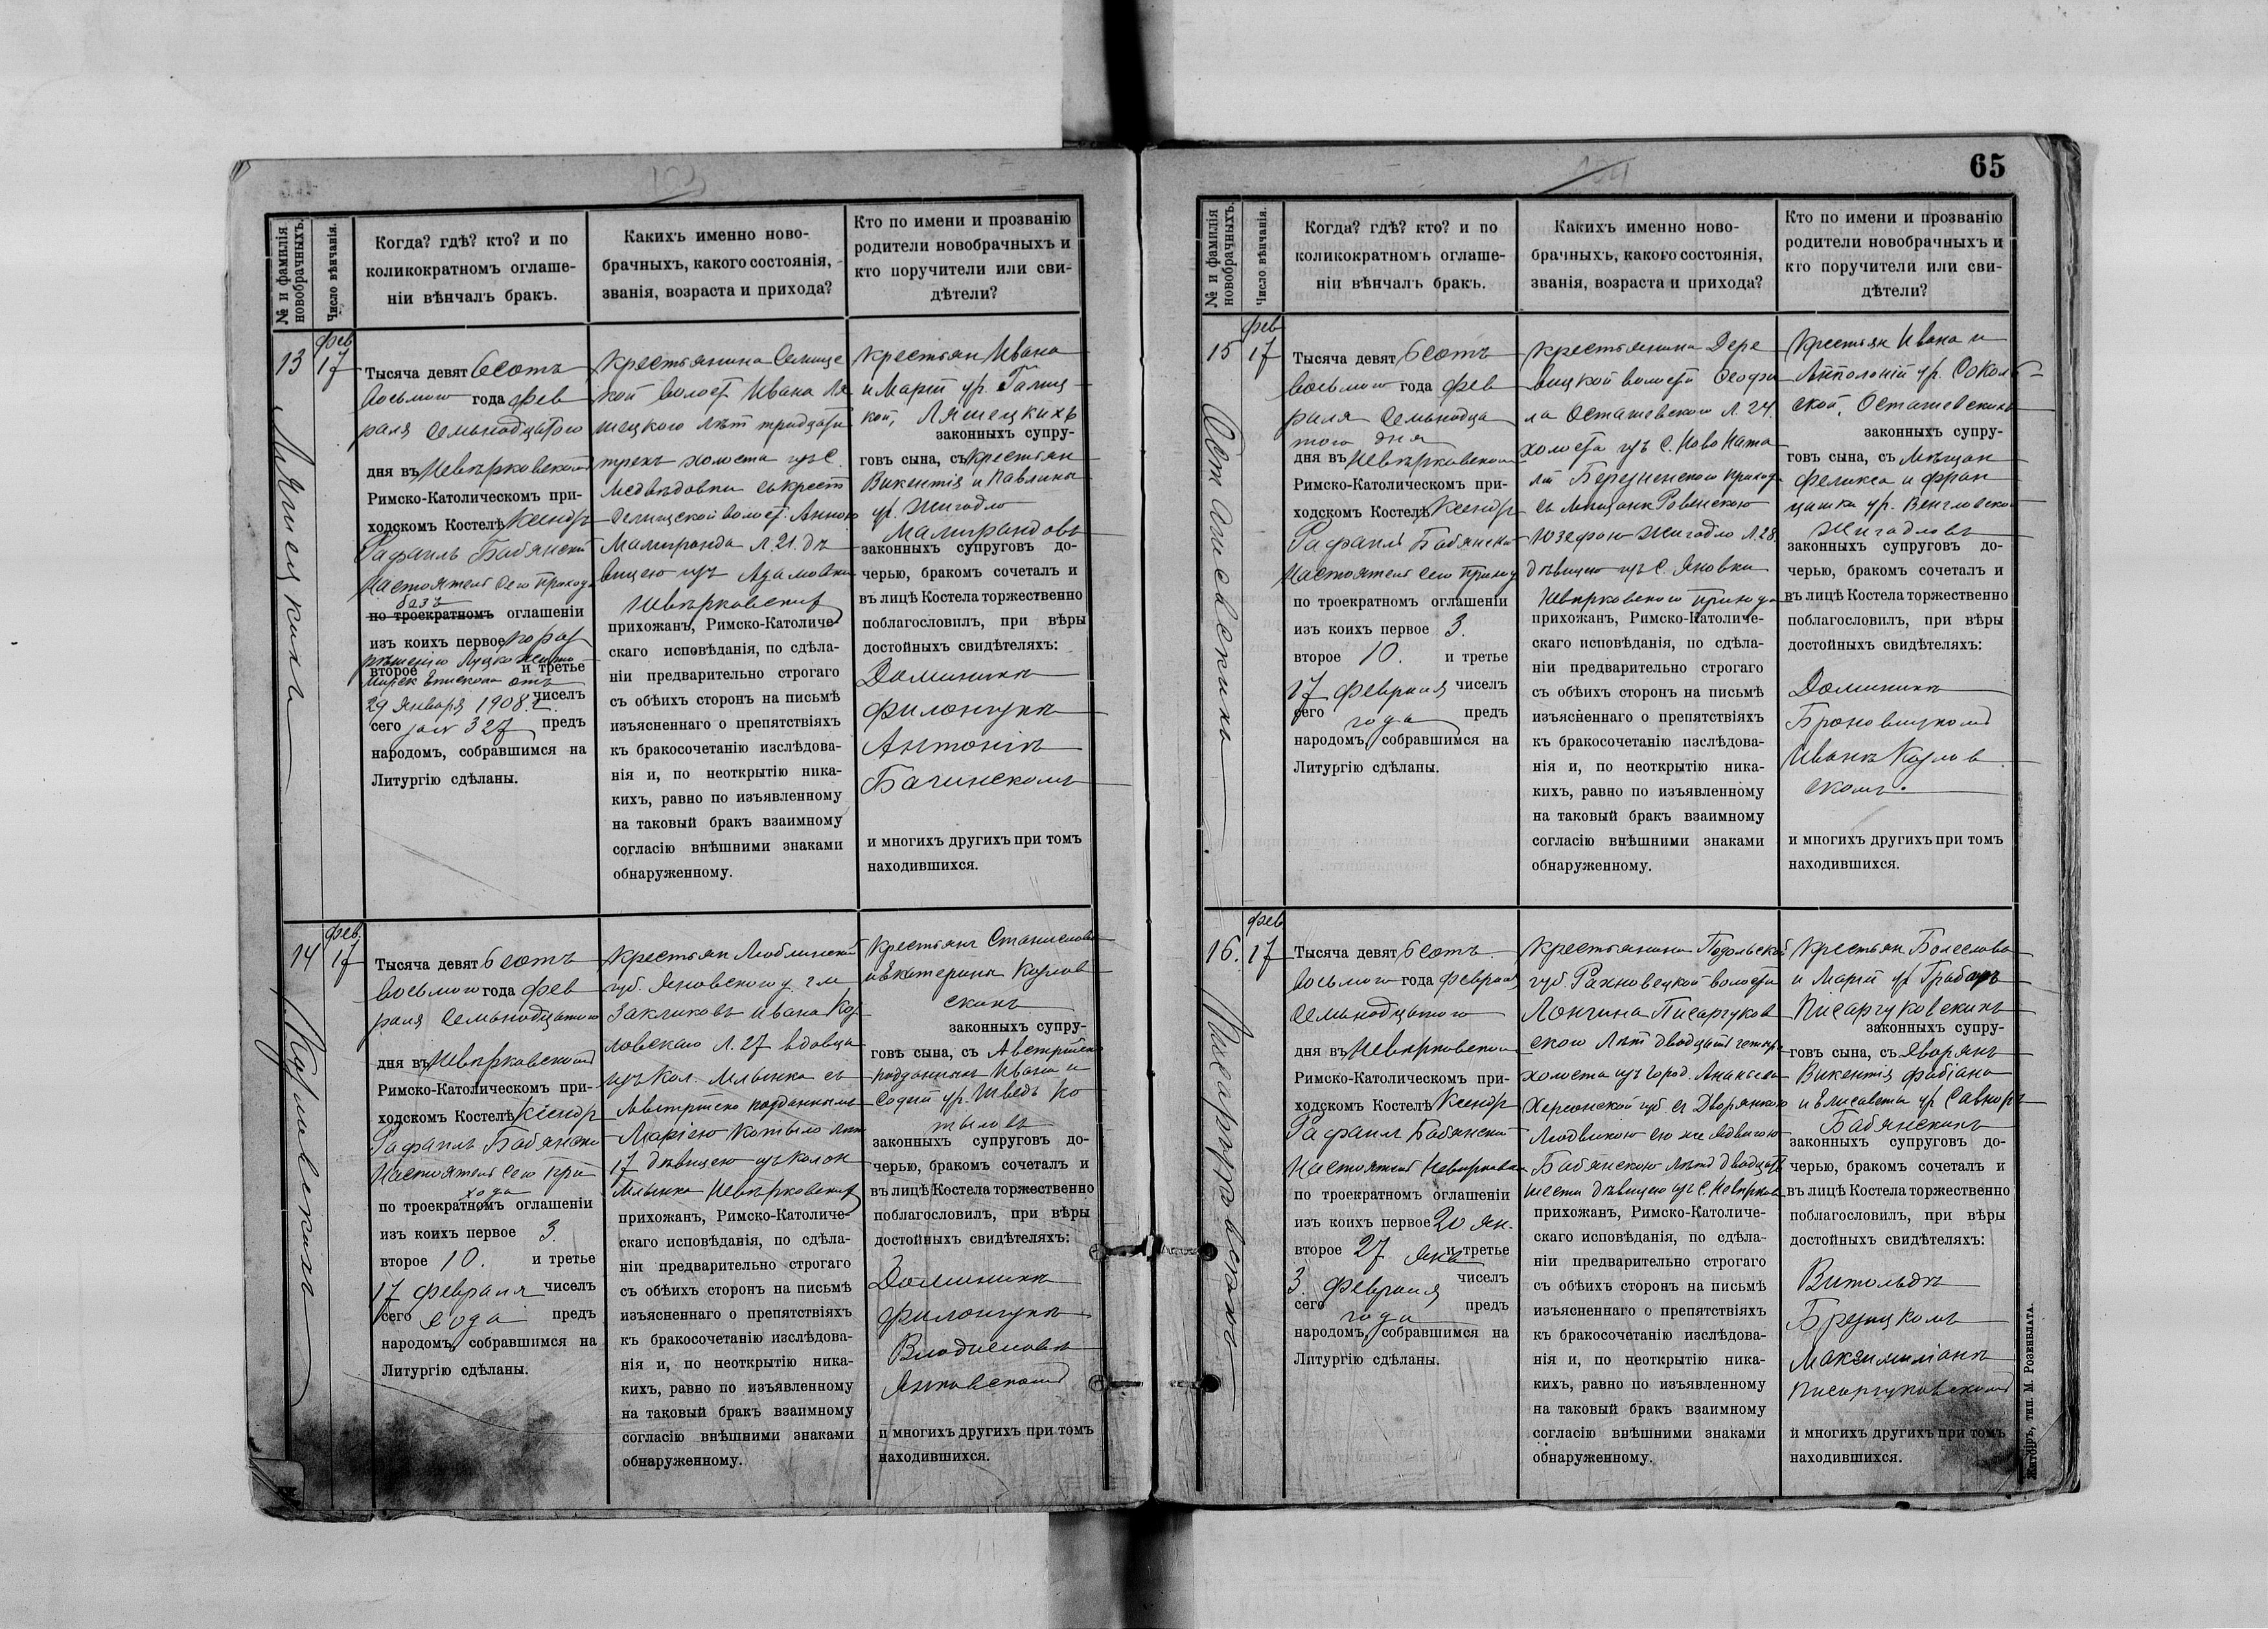 65
№ и фамилія
новобрачныхъ.
Число вѣнчанія.
Когда? гдѣ? кто? и по
коликократномъ оглаше-
ніи вѣнчалъ бракъ.
Какихъ именно ново-
брачныхъ, какого состоянія,
званія, возраста и прихода?
Кто по имени и прозванію
родители новобрачныхъ и
кто поручители или сви-
дѣтели?
13
фев
17
Лящецкихъ
Тысяча девятьсотъ
восьмого года фев
раля семьнодцатого
дня въ Невѣрковскомъ
Римско-Католическомъ при-
ходскомъ Костелѣ Ксендзъ
Рафаилъ Бабянскій
Настоятель сего прихода
безъ
по троекратномъ оглашеніи
изъ коихъ первое по раз
рѣшенію Луцко Жито
второе и третье
мирск Епископа отъ
29 Января 1908 г. чиселъ
сего за № 327 предъ
народомъ, собравшимся на
Литургію сдѣланы.
Крестьянина Селище
кой волост Ивана Ля
щецкого лѣт тридцати
трехъ холоста изъ с.
Медвѣдовки съ крест
Селищской волост. Анною
Малиранда л. 21. дѣ
вицею изъ Адамовки
Невѣрковских
прихожанъ, Римско-Католиче-
скаго исповѣданія, по сдѣла-
ніи предварительно строгаго
съ обѣихъ сторонъ на письмѣ
изъясненнаго о препятствіяхъ
къ бракосочетанію изслѣдова-
нія и, по неоткрытію ника-
кихъ, равно по изъявленному
на таковый бракъ взаимному
согласію внѣшними знаками
обнаруженному.
Крестьян Ивана
и Маріи ур. Галиц
кой, Лящецкихъ
законныхъ супру-
говъ сына, съ Крестьян
Викентія и Павлины
ур. Жигадло
Малирандовъ
законныхъ супруговъ до-
черью, бракомъ сочеталъ и
въ лицѣ Костела торжественно
поблагословилъ, при вѣры
достойныхъ свидѣтеляхъ:
Доминикѣ
Филончукѣ
Антоніѣ
Бачинскомъ
и многихъ другихъ при томъ
находившихся.
14
фев.
17
Козловскихъ
Тысяча девятьсотъ
восьмого года фев
раля семьнодцатого
дня въ Невѣрковскомъ
Римско-Католическомъ при-
ходскомъ Костелѣ Ксендзъ
Рафаилъ Бабянскі
Настоятель сего при
хода
по троекратномъ оглашеніи
изъ коихъ первое 3
второе 10. и третье
17 февраля чиселъ
сего года предъ
народомъ, собравшимся на
Литургію сдѣланы.
Крестьян Люблинской
губ. Яновского у. гм
Закликовъ Ивана Коз
ловскаго л. 27 вдовца
изъ Кол. Млынка съ
Австрійско подданными
Маріею Котыло лѣт
17 дѣвицею изъ колон
Млынка Невѣрковских
прихожанъ, Римско-Католиче-
скаго исповѣданія, по сдѣла-
ніи предварительно строгаго
съ обѣихъ сторонъ на письмѣ
изъясненнаго о препятствіяхъ
къ бракосочетанію изслѣдова-
нія и, по неоткрытію ника-
кихъ, равно по изъявленному
на таковый бракъ взаимному
согласію внѣшними знаками
обнаруженному.
Крестьянъ Станислава
и Екатерины Козлов
скихъ
законныхъ супру-
говъ сына, съ Австрійско
подданныхъ Ивана и
Софіи ур. Шведъ Ко
тыловъ
законныхъ супруговъ до-
черью, бракомъ сочеталъ и
въ лицѣ Костела торжественно
поблагословилъ, при вѣры
достойныхъ свидѣтеляхъ:
Доминикѣ
Филончукѣ
Владиславѣ
Янковскомъ
и многихъ другихъ при томъ
находившихся.
№ и фамилія
новобрачныхъ.
Число вѣнчанія.
Когда? гдѣ? кто? и по
коликократномъ оглаше-
ніи вѣнчалъ бракъ.
Какихъ именно ново-
брачныхъ, какого состоянія,
званія, возраста и прихода?
Кто по имени и прозванію
родители новобрачныхъ и
кто поручители или сви-
дѣтели?
15
фев
17
Осташевскихъ
Тысяча девятьсотъ
восьмого года фев
раля семьнодца
того дня
дня въ Невѣрковском
Римско-Католическомъ при-
ходскомъ Костелѣ Ксендзъ
Рафаилъ Бабянскі
Настоятель сего приход
по троекратномъ оглашеніи
изъ коихъ первое 3.
второе 10. и третье
17 февраля чиселъ
сего года предъ
народомъ, собравшимся на
Литургію сдѣланы.
Крестьянина Дере
вицкой волости Феофи
ла Осташевского л. 24.
холоста изъ с. Ново Ната
ліи Березненского приход
съ мѣщанк Ровенскою
Юзефою Жигадло л. 28
дѣвицею изъ с. Яновки
Невѣрковского прихода
прихожанъ, Римско-Католиче-
скаго исповѣданія, по сдѣла-
ніи предварительно строгаго
съ обѣихъ сторонъ на письмѣ
изъясненнаго о препятствіяхъ
къ бракосочетанію изслѣдова-
нія и, по неоткрытію ника-
кихъ, равно по изъявленному
на таковый бракъ взаимному
согласію внѣшними знаками
обнаруженному.
Крестьян Ивана и
Апполоніи ур. Сокол
ской, Осташевскихъ
законныхъ супру-
говъ сына, съ Мѣщан
Феликса и Фран
цишки ур. Венгловско
Жигадловъ
законныхъ супруговъ до-
черью, бракомъ сочеталъ и
въ лицѣ Костела торжественно
поблагословилъ, при вѣры
достойныхъ свидѣтеляхъ:
Доминикѣ
Броновицкомъ
Иванѣ Козлов
скомъ.
и многихъ другихъ при томъ
находившихся.
16.
фев
17
Писарчуковскихъ
Тысяча девятьсотъ
восьмого года февраля
семьнодцатого
дня въ Невѣрковском
Римско-Католическомъ при-
ходскомъ Костелѣ Ксендзъ
Рафаил Бабянскій
Настоятель Невѣрковск
по троекратномъ оглашеніи
изъ коихъ первое 20 Ян.
второе 27 Янв и третье
3. февраля чиселъ
сего года предъ
народомъ, собравшимся на
Литургію сдѣланы.
Крестьянина Подольской
губ. Рахновецкой волости
Лонгина Писарчуков
ского лѣт двадцати четыре
холоста изъ город. Ананьева
Херсонской губ. съ Дворянкою
Людвикою
Бабянскою лѣт двадцать
шести дѣвицею изъ с. Невѣрков
прихожанъ, Римско-Католиче-
скаго исповѣданія, по сдѣла-
ніи предварительно строгаго
съ обѣихъ сторонъ на письмѣ
изъясненнаго о препятствіяхъ
къ бракосочетанію изслѣдова-
нія и, по неоткрытію ника-
кихъ, равно по изъявленному
на таковый бракъ взаимному
согласію внѣшними знаками
обнаруженному.
Крестьян Болеслава
и Маріи ур Грабаръ
Писарчуковскихъ
законныхъ супру-
говъ сына, съ Дворянъ
Викентія Фабіана
и Елисаветы ур
Бабянскихъ
законныхъ супруговъ до-
черью, бракомъ сочеталъ и
въ лицѣ Костела торжественно
поблагословилъ, при вѣры
достойныхъ свидѣтеляхъ:
Витольдѣ
Брезицкомъ
Максиміліанѣ
Писарчуковскомъ
и многихъ другихъ при томъ
находившихся.
Житоміръ, тип. М. Розенблата.